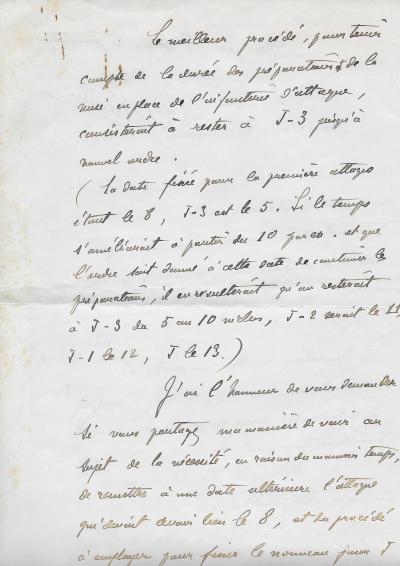 Le meilleur procédé, pour tenir
compte de la durée des préparations & de la
mise en place de l'infanterie d'attaque,
consisterait à rester à J-3 jusqu'à
nouvel ordre.
(La date fixée pour la première attaque
étant le 8, J-3 est le 5. Si le temps
s'améliorait à partir du 10 par ex. et que
l'ordre soit donné à cette date de continuer la
préparation, il en résulterait qu'on resterait
à J-3 du 5 au 10 inclus, J-2 serait le 11,
J-1 le 12, J le 13.)
J'ai l'honneur de vous demander
si vous partagez ma manière de voir au
sujet de la nécessité, en raison du mauvais temps,
de remettre à une date ultérieure l'attaque
qui devait avoir lieu le 8, et du procédé
à employer pour fixer le nouveau jour J